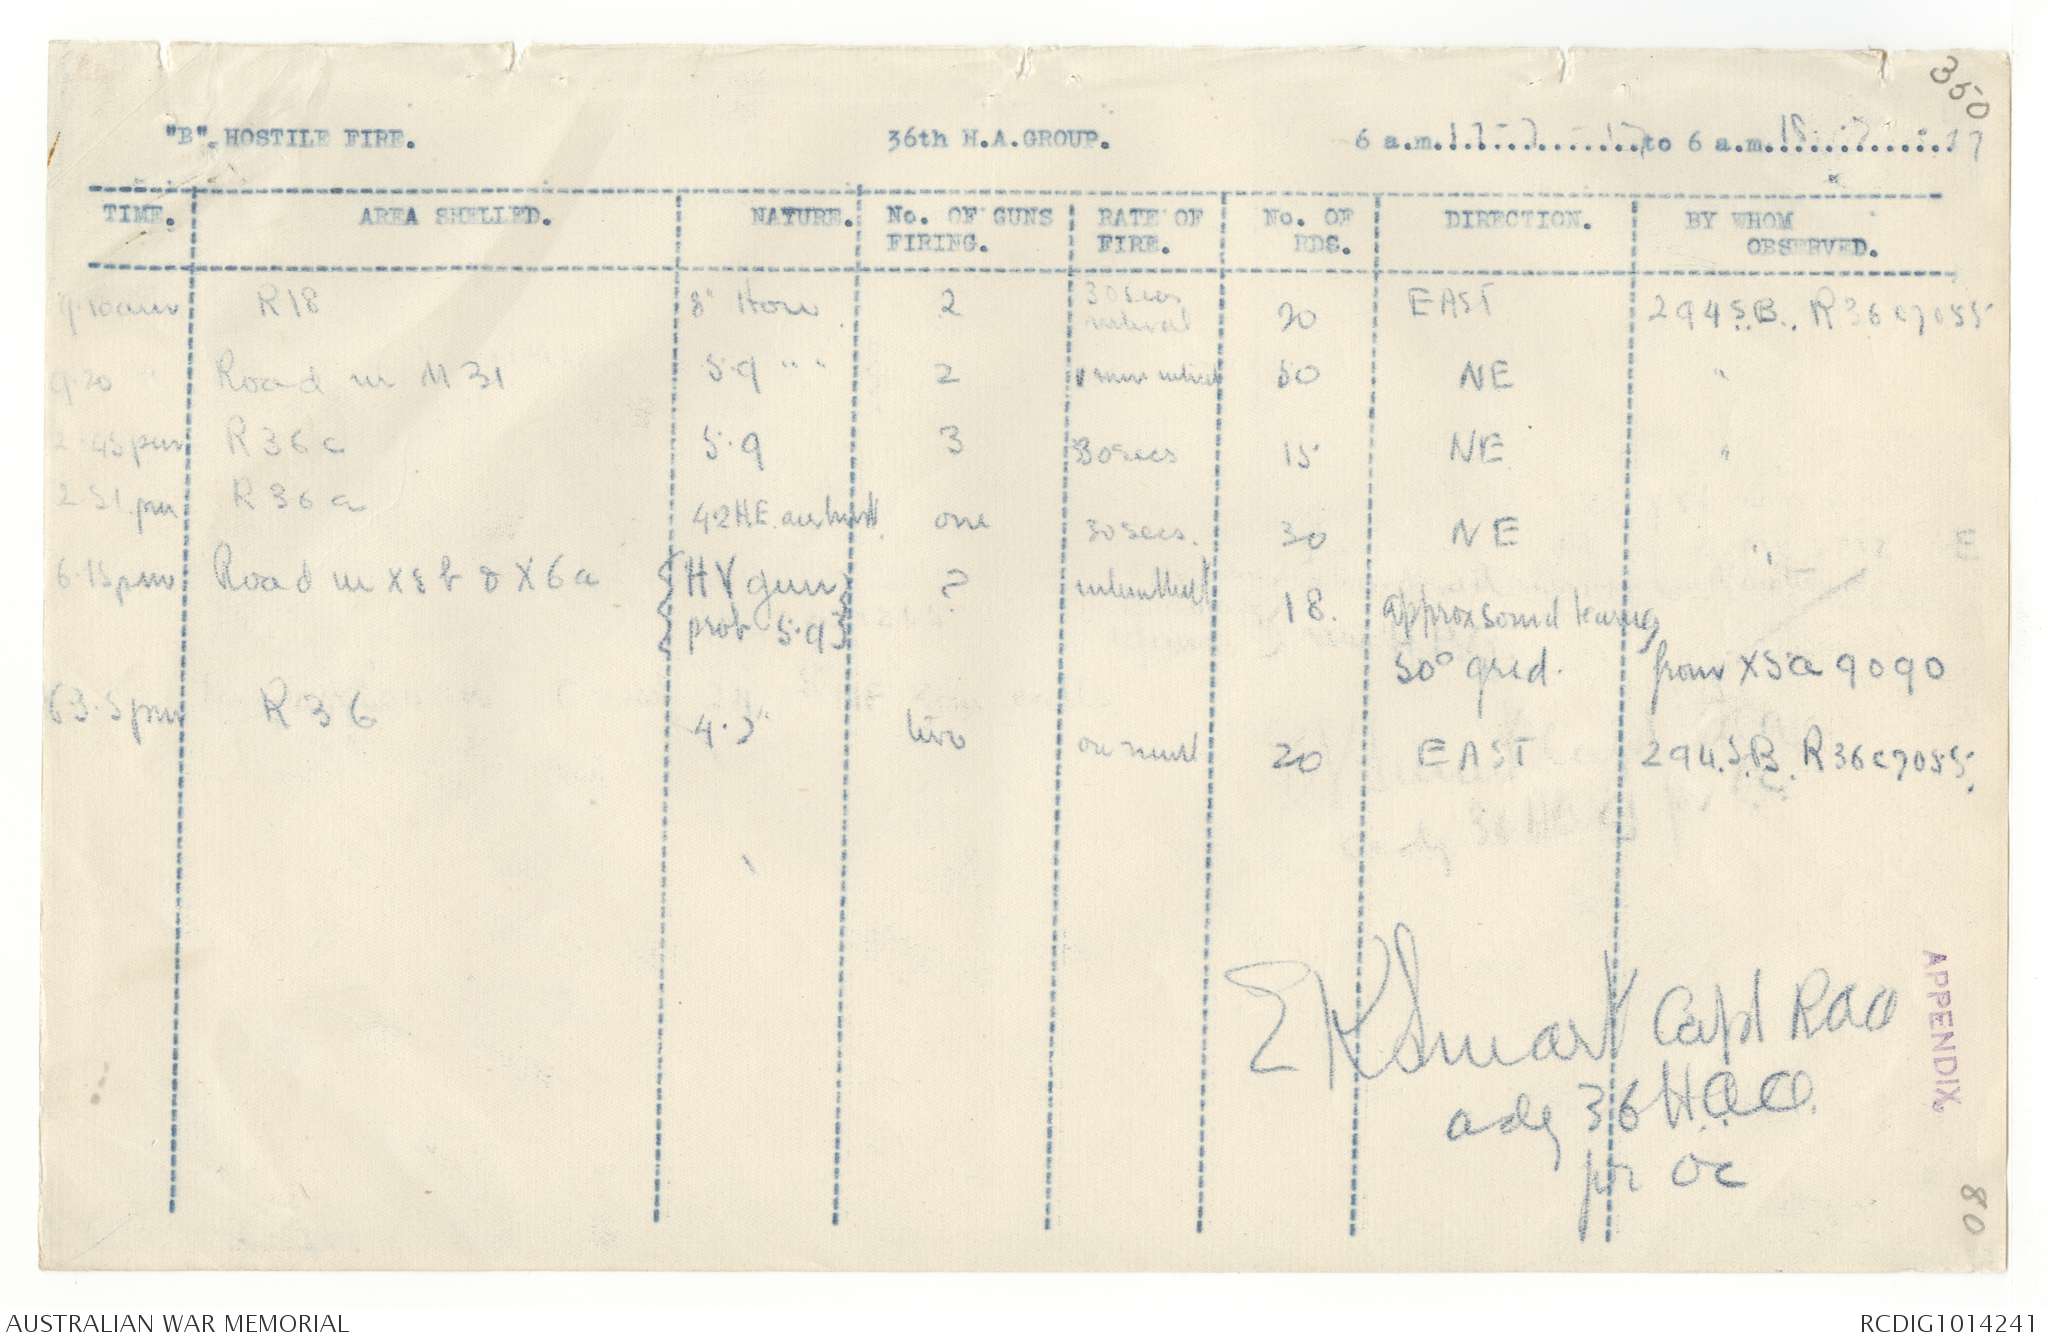 350
"B". HOSTILE FIRE. 36th H.A.GROUP. 6 a.m. 17.7.17 to 6 a.m. 18.7.17
TIME. AREA SHELLED. NATURE. No. OF GUNS FIRING. RATE OF FIRE. No. OF RDS. DIRECTION. BY WHOM OBSERVED.
9.10am R18 8" How 2 30secs interval 20 EAST 294 S.B. R36c7055
9.20 " Road in M31 5.9 " " 2 1 min interval 50 NE "
2.45pm R36c 5.9 3 30secs 15 NE "
2.51 pm R36a 42HE. airburst one 30secs. 30 NE "
6.15pm Road in X5b & X6a {HV gun ? intermittent 18. approx sound bearing
{prob 5.9} 50° grid. from X5a 9090
63.5pm R36 4.2" two one minute 20 EAST 294.S.B. R36c7055.
EKSmart Capt RAA
adj 36 H.A.G.
for OC
APPENDIX.
80
AUSTRALIAN WAR MEMORIAL RCDIG1014241